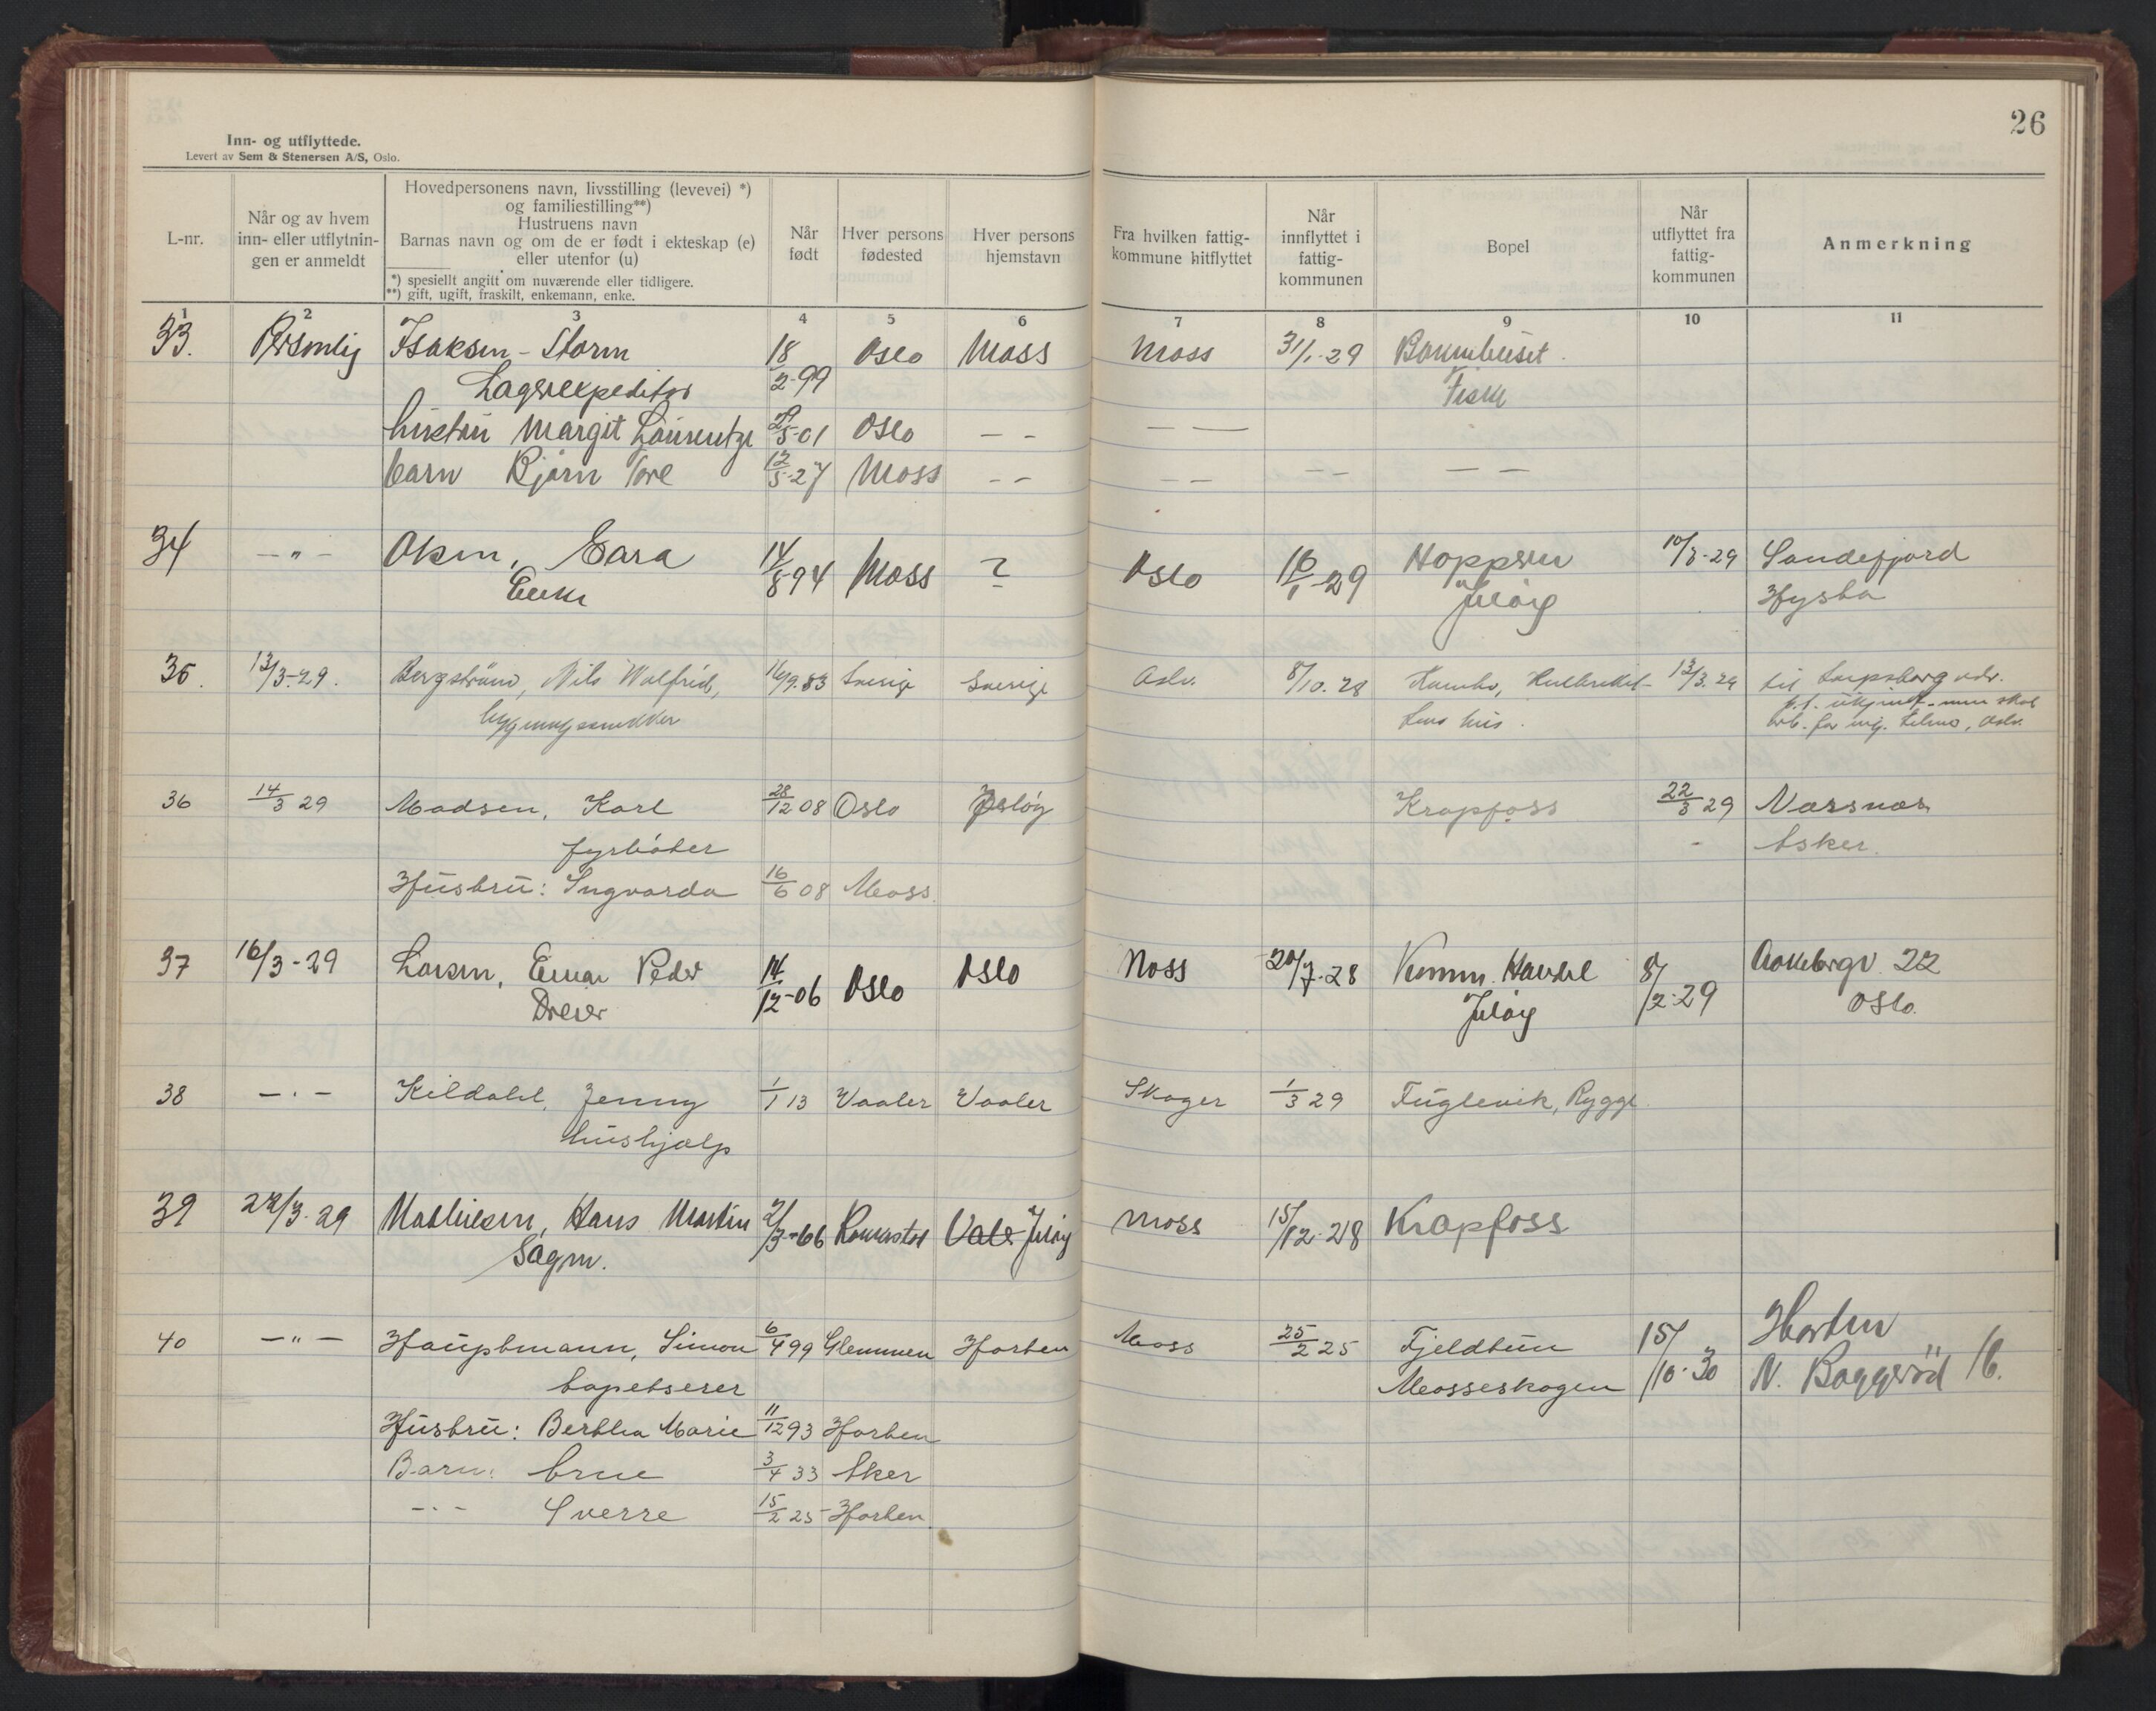 26
Inn- og utflyttede.
Levert av Sem & Stenersen A/S, Oslo.
L-nr.
Når og av hvem
inn- eller utflytnin-
gen er anmeldt
Hovedpersonens navn, livsstilling (levevei) *)
og familiestilling**)
Hustruens navn
Barnas navn og om de er født i ekteskap (e)
eller utenfor (u)
*) spesiellt angitt om nuværende eller tidligere.
**) gift, ugift, fraskilt, enkemann, enke.
Når
født
Hver persons
fødested
Hver persons
hjemstavn
Fra hvilken fattig-
kommune hitflyttet
Når
innflyttet i
fattig-
kommunen
Bopel
Når
utflyttet fra
fattig-
kommunen
Anmerkning
1 2 3 4 5 6 7 8 9 10 11
33. Personlig Isaksen - Storm 18/2-99 Oslo Moss Moss 31/1-29
Lagerexpeditør
hustru Margit 5-01 Oslo - - - -
barn Bjørn Tore 12/5-27 Moss - - - - - - - -
34 - " - Olsen, Sara 14/8 94 Moss ? Oslo 16/1-29 Hoppern 10/3-29 Sandefjord
Enke Jeløy
35. 13/3-29. Bergstrøm, Nils Walfrid, 16/9.83 Sverige Sverige Oslo. 8/10.28 13/3.29 til Sarpsborg adr.
bygningssnekker hus.
36 14/3 29 Madsen, Karl 28/12 08 Oslo Krapfoss 22/3 29 Næsnes
fyrbøter - Asker.
Hustru: Ingvarda 16/6 08 Moss.
37 16/3-29 Larsen, Einar Peder 14/12-06 Oslo Oslo Moss 20/7-28 8/2-29 Aakebergv. 22
Dreier Jeløy Oslo.
38 - " - Kildahl, Jenny 1/1 13 Vaaler Vaaler Skoger 1/3 29 Fuglevik, Rygge.
hushjælp
39 22/3-29 Mathiesen, Hans Martin 2/3-66 Vaaler Jeløy Moss 15/12-28 Krapfoss
Sagm.
40 - " - Hauptmann, Simon 6/4 99 Glemmen Horten Moss 25/2 25 Fjeldtun 15/10-30 Horten
tapetserer Mosseskogen N. Baggerød 16.
Hustru: Berthla Marie 11/12 93 Horten
Barn: Arne 3/4 33 Aker
- " - Sverre 15/2 25 Horten